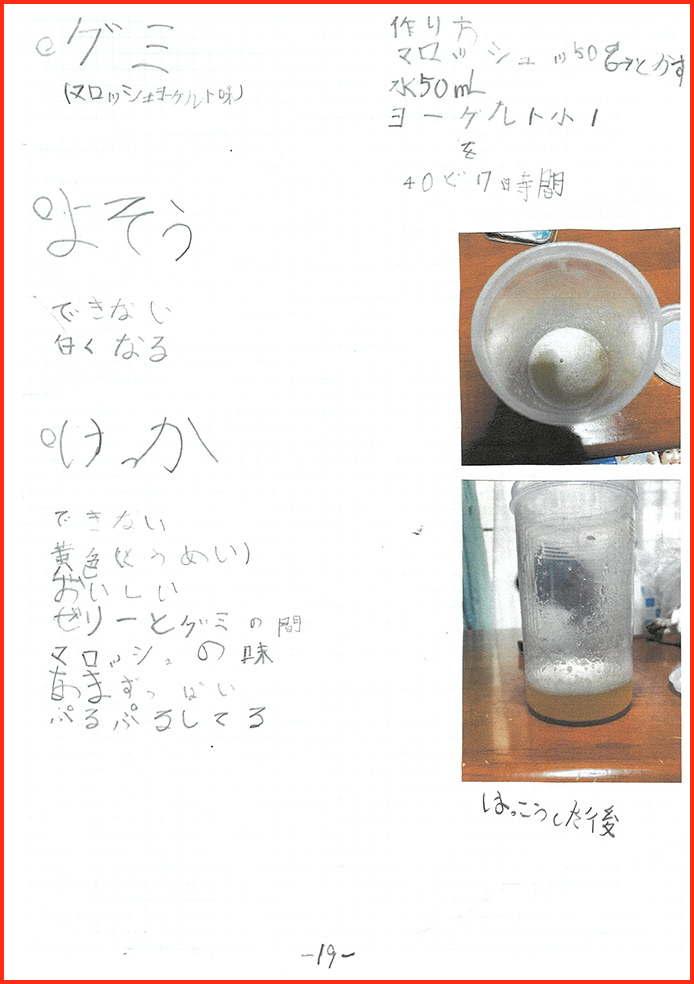 グミ
(マロッシュヨーグルト味)
よそう
できない
白くなる
けっか
できない
黄色(とうめい)
おいしい
ゼリーとグミの間
マロッシュの味
あまずっぱい
ぷるぷるしてる
作り方
マロッシュッ50gとかす
水50mL
ヨーグルト小1
を
40ど7時間
はっこうした後
-19-